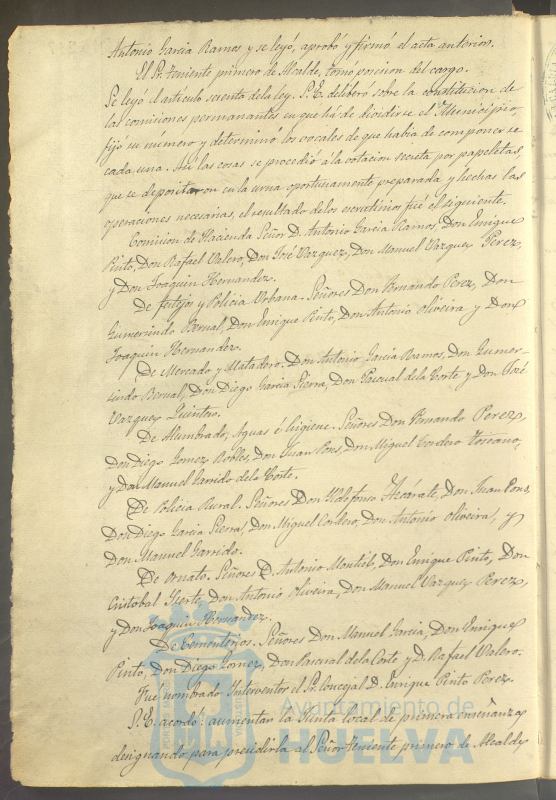 Antonio Garcia Ramos y se leyó, aprobó y firmó el acta anterior.
El Sr. Teniente primero de Alcalde, tomó posesion del cargo.
Se leyó el artículo sesenta de la ley. S. E. deliberó sobre la constitucion de
las comisiones permanentes en que há de dividirse el Municipio,
fijó su número y determinó los vocales de que habia de componerse
cada una. Así las cosas se procedió á la votacion secreta por papeletas,
que se depositaron en la urna oportunamente preparada y hechas las
operaciones necesarias, el resultado de los escrutinios fué el siguiente.
Comision de Hacienda Señor D. Antonio Garcia Ramos, Don Enrique
Pinto, Don Rafael Valero, Don José Vazquez, Don Manuel Vazquez Perez,
y Don Joaquin Hernandez.
De festejos y Policia Urbana. Señores Don Fernando Perez, Don
Gumersindo Bernal, Don Enrique Pinto, Don Antonio Oliveira y Don
Joaquin Hernandez.
De Mercado y Matadero. Don Antonio Garcia Ramos, Don Gumer-
sindo Bernal, Don Diego Garcia Sierra, Don Pascual de la Corte y Don José
Vazquez Quintero.
De Alumbrado, Aguas é higiene. Señores Don Fernando Perez,
Don Diego Gomez Robles, Don Juan Pons, Don Miguel Cordero Toscano,
y Don Manuel Garrido de la Corte.
De Policia Rural. Señores Don Ildefonso Azcárate, Don Juan Pons,
Don Diego Garcia Sierra, Don Miguel Cordero, Don Antonio Oliveira, y
Don Manuel Garrido.
De Ornato. Señores D. Antonio Don Enrique Pinto, Don
Cristobal Don Antonio Oliveira, Don Manuel Vazquez Perez,
y Don Joaquin Hernandez.
De Cementerios. Señores Don Manuel Garcia, Don Enrique
Pinto, Don Diego Gomez, Don Pascual de la Corte y D. Rafael Valero.
Fué nombrado Interventor el Sr. Concejal D. Enrique Pinto Perez.
S. E. acordó: aumentar la Junta local de primera enseñanza,
designando para presidirla al Señor Teniente primero de Alcalde
Ayuntamiento de
HUELVA